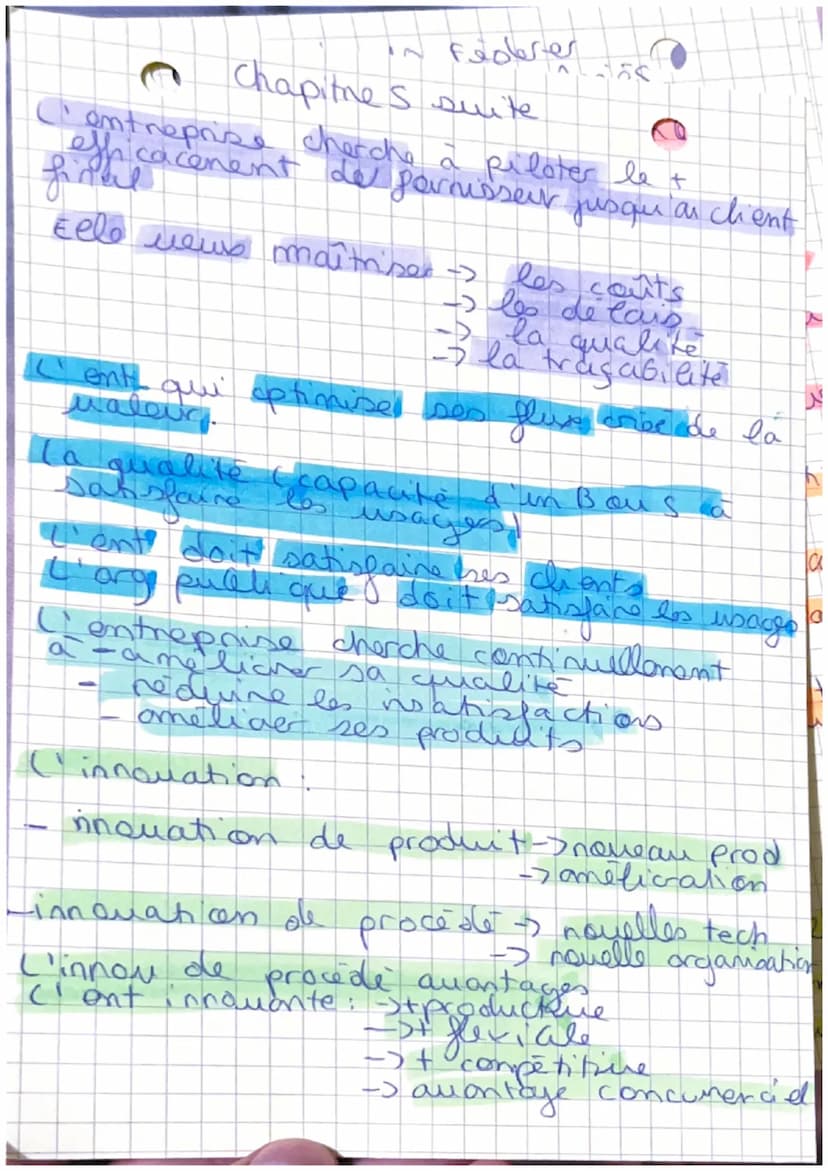 in Fédérer
Chapitre 5 suite
L'entreprise cherche à piloter le +
efficacement de fournisseur jusqu'au client
final
Cela veut maîtriser -> les coûts
-> les délais
-> la qualité
-> la traçabilité
L'ent qui optimise ses flux crée de la
valeur.
La qualité (capacité d'un B ou S à
satisfaire les usagers)
L'ent doit satisfaire ses clients
L'org publique doit satisfaire les usagers
L'entreprise cherche continuellement
à - améliorer sa qualité
- réduire les insatisfactions
- améliorer ses produits
L'innovation :
- innovation de produit -> nouveau prod
-> amélioration
- innovation de procédé -> nouvelles tech
-> nouvelle organisation
L'innov de procédé avantages
L'ent innovante : -> + productive
-> + flexible
-> + compétitive
-> avantage concurrenciel